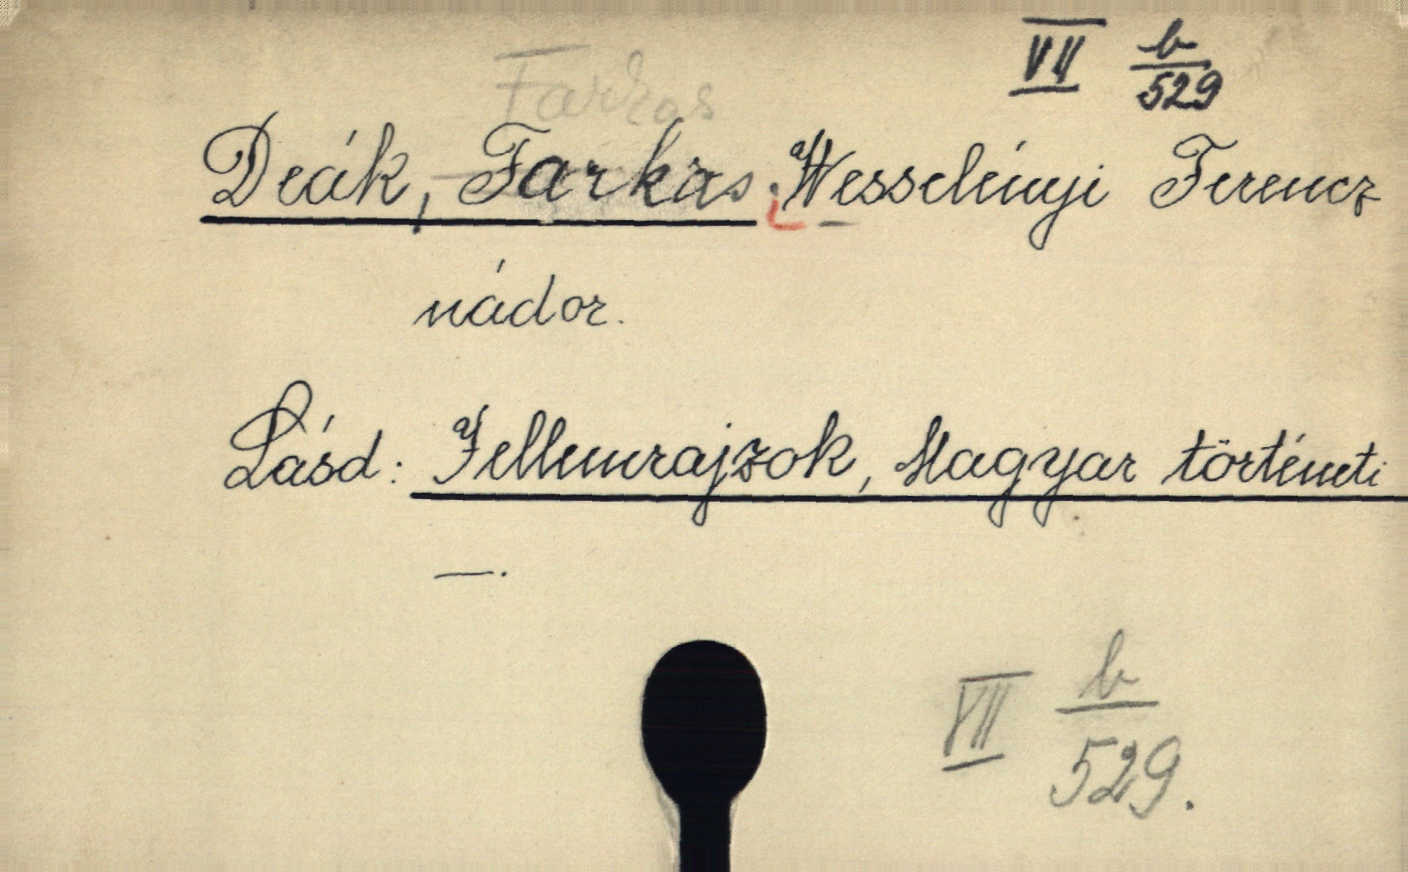 VII b/529
Farkas
Deák, Farkas: Wesselényi Ferencz
nádor.
Lásd: Jellemrajzok, Magyar történeti
—.
VII b/529.